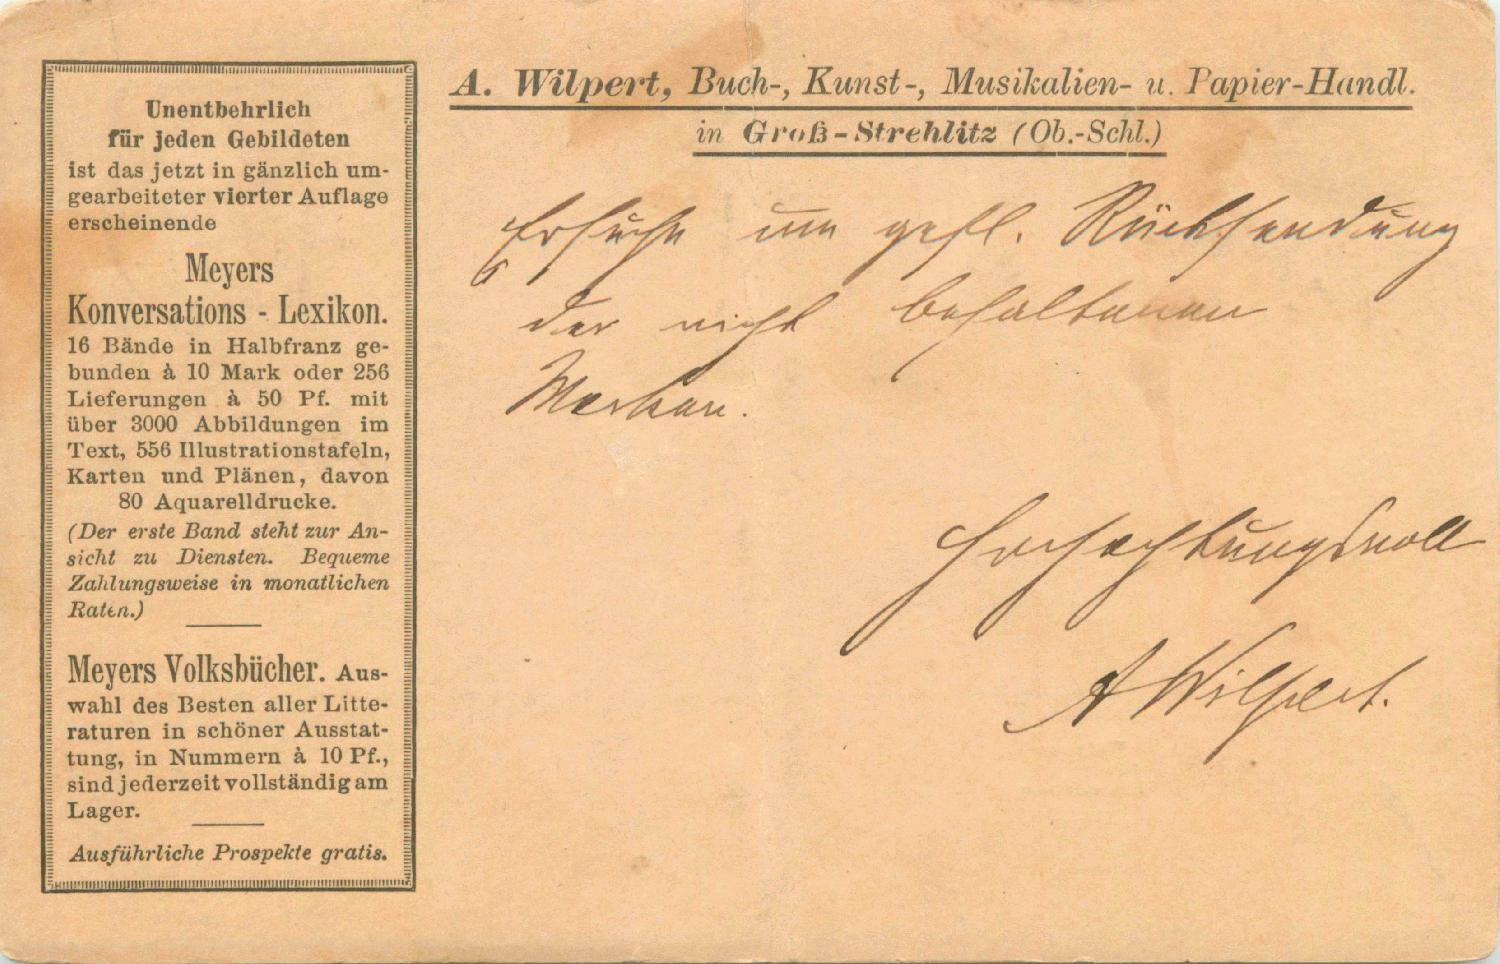 Unentbehrlich
für jeden Gebildeten
ist das jetzt in gänzlich um-
gearbeiteter vierter Auflage
erscheinende
Meyers
Konversations - Lexikon.
16 Bände in Halbfranz ge-
bunden à 10 Mark oder 256
Lieferungen à 50 Pf. mit
über 3000 Abbildungen im
Text, 556 Illustrationstafeln,
Karten und Plänen, davon
80 Aquarelldrucke.
(Der erste Band steht zur An-
sicht zu Diensten. Bequeme
Zahlungsweise in monatlichen
Raten.)
Meyers Volksbücher. Aus-
wahl des Besten aller Litte-
raturen in schöner Ausstat-
tung, in Nummern à 10 Pf.,
sind jederzeit vollständig am
Lager.
Ausführliche Prospekte gratis.
A. Wilpert, Buch-, Kunst-, Musikalien- u. Papier-Handl.
in Groß-Strehlitz (Ob.-Schl.)
Ersuche um gefl. Rücksendung
der nicht behaltenen
Marken.
Hochachtungsvoll
A Wilpert.